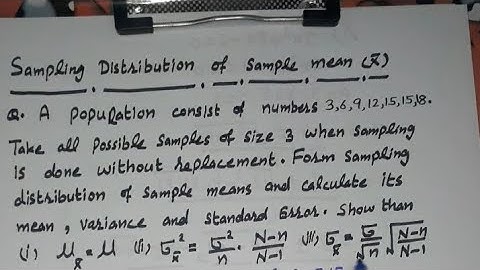 Sampling Distribution of Sample mean (x̄)
Q. A population consist of numbers 3,6,9,12,15,15,18.
Take all possible samples of size 3 when sampling
is done without replacement. Form sampling
distribution of sample means and calculate its
mean, variance and standard Error. Show than
(i) μx̄ = μ (ii) σx̄² = σ²/n · N-n/N-1 (iii) σx̄ = σ/√n √N-n/N-1